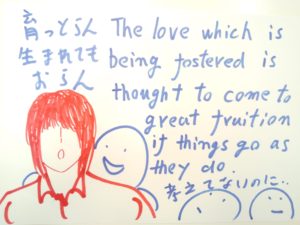 育っとらん
生まれても
おらん
The love which is
being fostered is
thought to come to
great fruition
if things go as
they do.
考えてないのに..